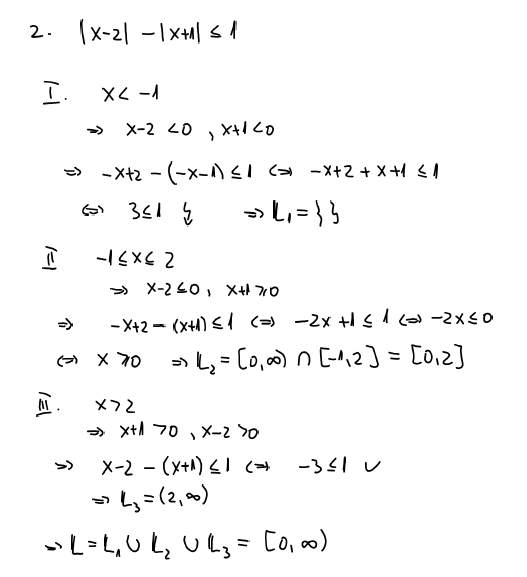 2. |x-2| - |x+1| ≤ 1
I. x < -1
⇒ x-2 < 0 , x+1 < 0
⇒ -x+2 - (-x-1) ≤ 1 ⇔ -x+2 + x+1 ≤ 1
⇔ 3 ≤ 1 ↯ ⇒ L₁ = { }
II -1 ≤ x ≤ 2
⇒ x-2 ≤ 0 , x+1 ≥ 0
⇒ -x+2 - (x+1) ≤ 1 ⇔ -2x +1 ≤ 1 ⇔ -2x ≤ 0
⇔ x ≥ 0 ⇒ L₂ = [0,∞) ∩ [-1,2] = [0,2]
III. x > 2
⇒ x+1 > 0 , x-2 > 0
⇒ x-2 - (x+1) ≤ 1 ⇔ -3 ≤ 1 ✓
⇒ L₃ = (2,∞)
⇒ L = L₁ ∪ L₂ ∪ L₃ = [0,∞)